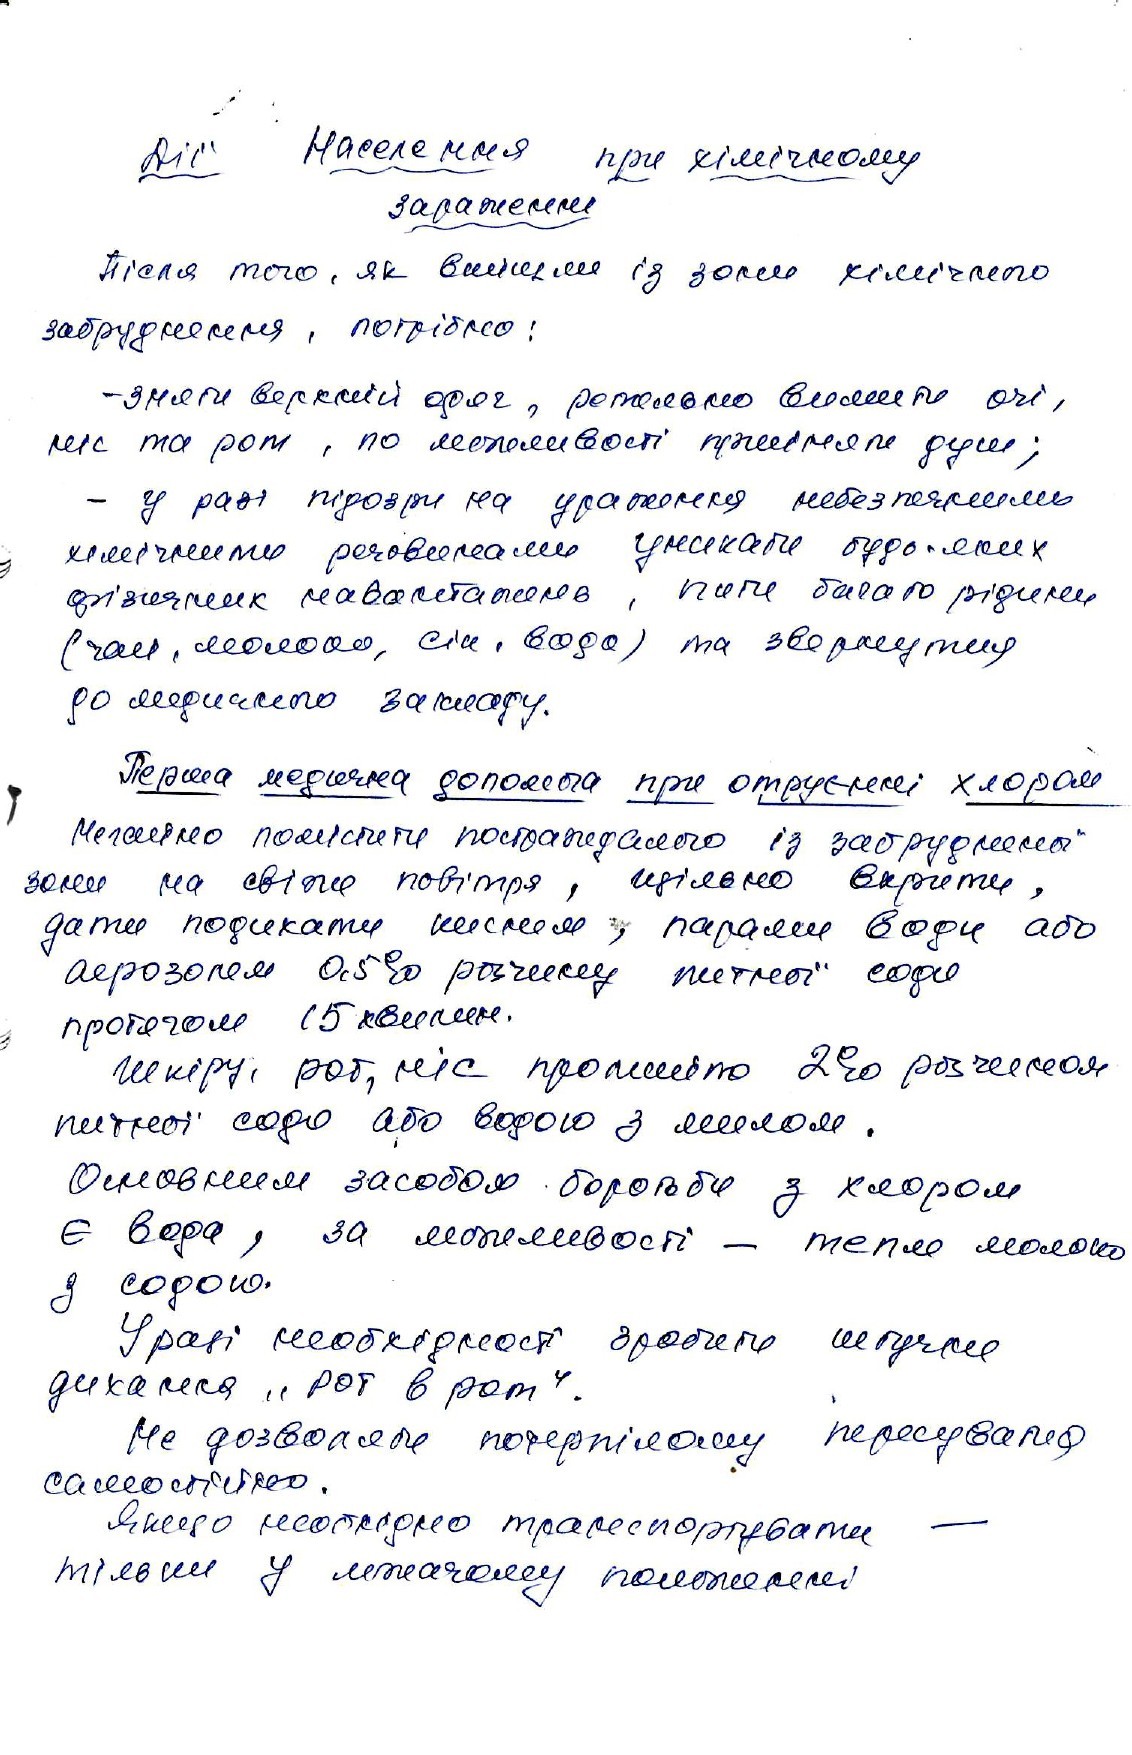 Дії Населення при хімічному
зараженні
Після того, як вийшли із зони хімічного
забруднення, потрібно:
- зняти верхній одяг, ретельно вимити очі,
ніс та рот, по можливості прийняти душ;
- у разі підозри на ураження небезпечними
хімічними речовинами уникати будь-яких
фізичних навантажень, пити багато рідини
(чай, молоко, сік, вода) та звернутися
до медичного закладу.
Перша медична допомога при отруєнні хлором
Негайно помістити постраждалого із забрудненої
зони на свіже повітря, щільно вкрити,
дати подихати киснем, парами води або
аерозолем 0.5% розчину питної соди
протягом 15 хвилин.
Шкіру, рот, ніс промийте 2% розчином
питної соди або водою з милом.
Основним засобом боротьби з хлором
є вода, за можливості — тепле молоко
з содою.
У разі необхідності зробити штучне
дихання „рот в рот".
Не дозволяти потерпілому пересуватися
самостійно.
Якщо необхідно транспортувати —
тільки у лежачому положенні